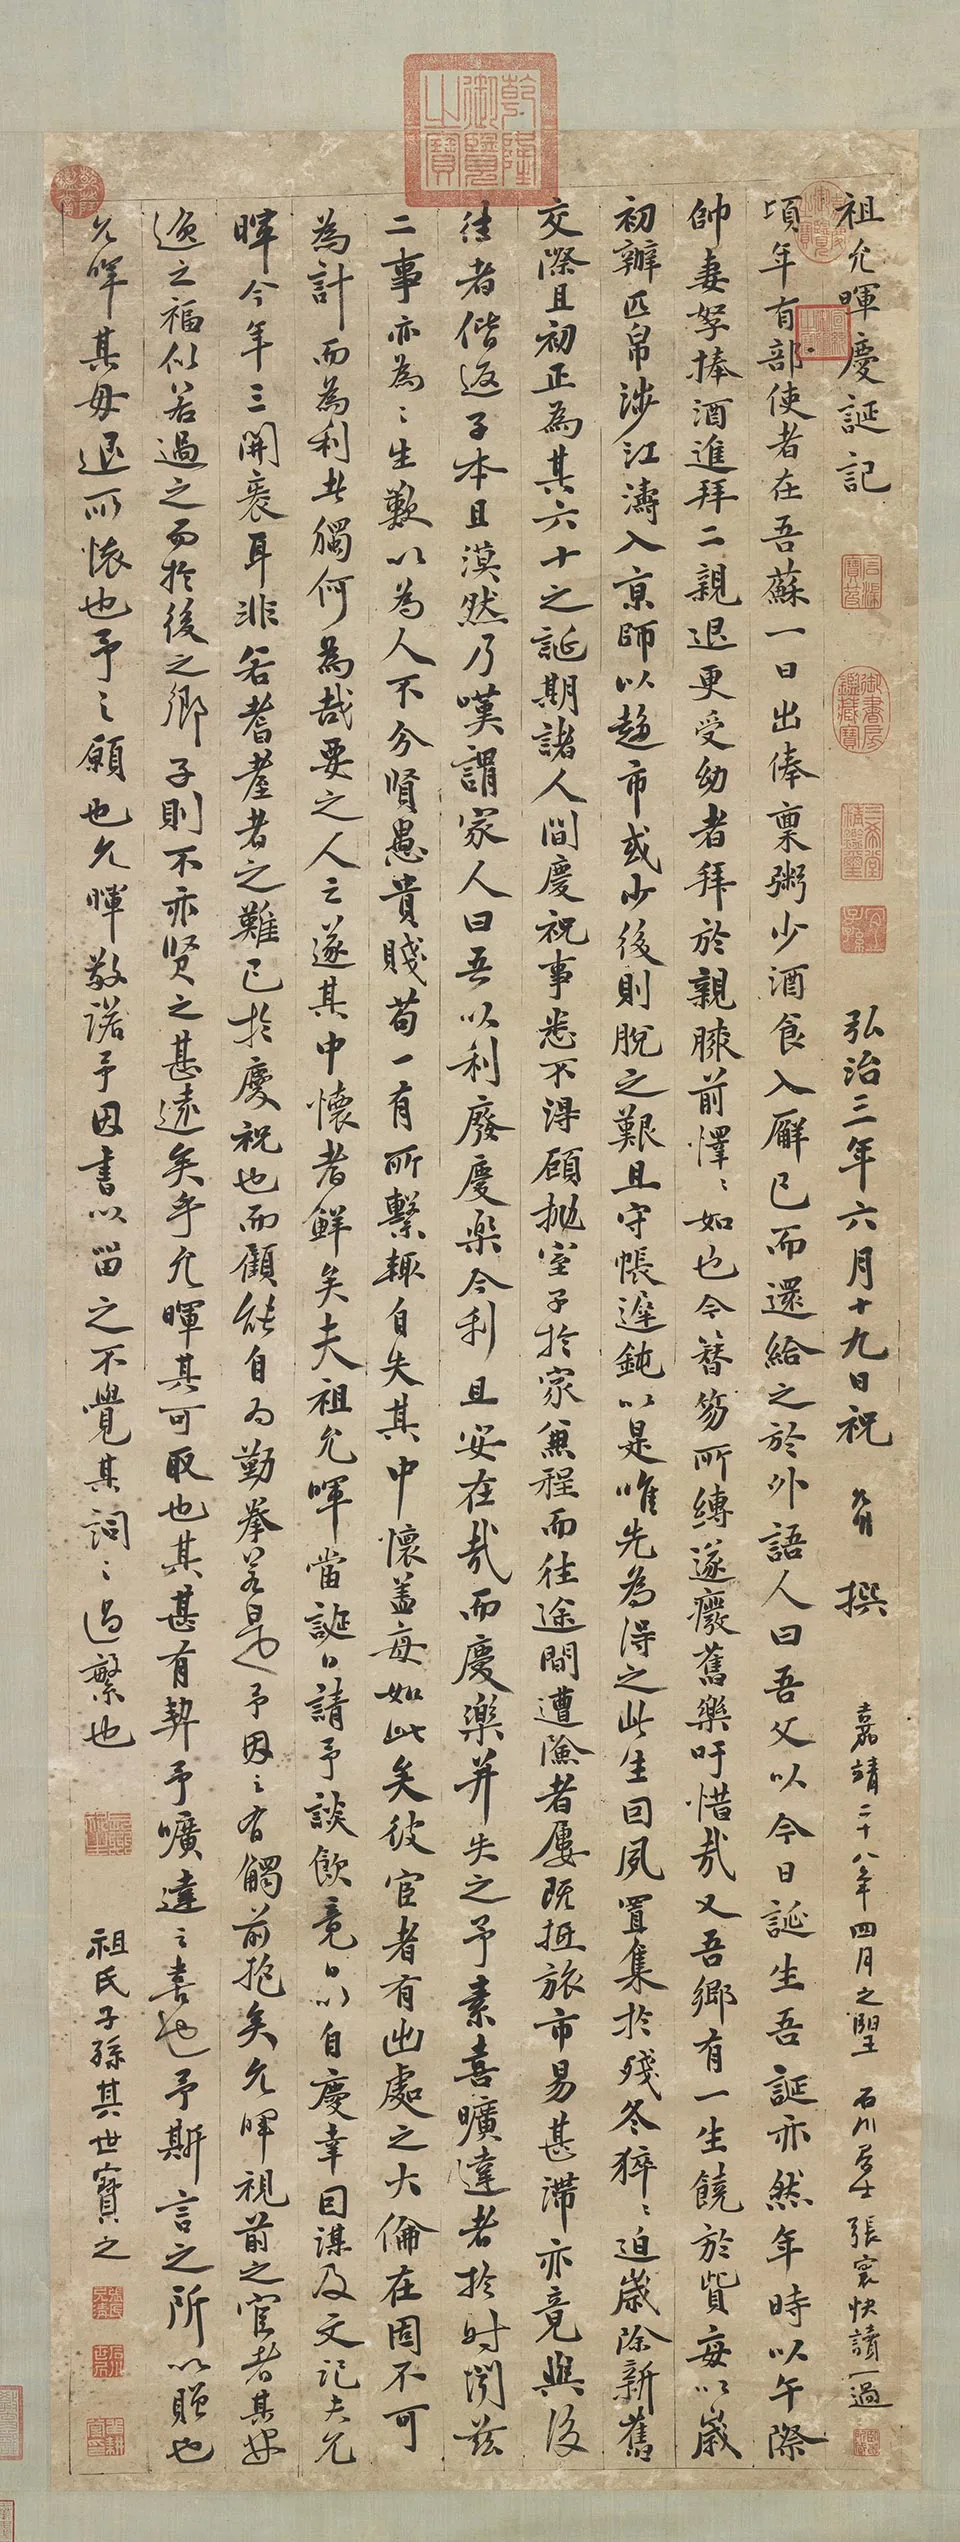 乾隆御覽之寶
祖允暉慶誕記 弘治三年六月十九日祝 允明 撰
嘉靖二十八年四月之望 石川居士張寰快讀一過
頃年有部使者在吾蘇一日出俸稟粥少酒食入廨已而還給之於外語人曰吾父以今日誕生吾誕亦然年時以午際
帥妻孥捧酒進拜二親退更受幼者拜於親膝前懌〻如也今簪笏所縛遂癈舊樂吁惜哉又吾鄉有一生饒於貲每以歲
初辦匹帛涉江濤入京師以趨市或少後則脫之艱且守帳遲鈍以是唯先為得之此生回夙置集於殘冬猝〻迫歲除新舊
交際且初正為其六十之誕期諸人間慶祝事悉不得顧拋室子於家兼程而往途間遭險者屢既抵旅市易甚滯亦竟與後
往者偕返子本且漠然乃嘆謂家人曰吾以利廢慶樂今利且安在哉而慶樂并失之予素喜曠達者於時閔茲
二事亦為〻生歎以為人不分賢愚貴賤苟一有所繫輒自失其中懷盖每如此矣彼宦者有出處之大倫在固不可
為計而為利者獨何為哉要之人之遂其中懷者鮮矣夫祖允暉當誕日請予談飲竟日以自慶幸因謀及文記夫允
暉今年三開袠耳非若耆耋者之難已於慶祝也而顧能自為勤拳若是也予因之有觸前抱矣允暉視前之宦者其安
逸之福似若過之而於後之鄉子則不亦贤之甚遠矣乎允暉其可取也其甚有契予曠達之喜也予斯言之所以贈也
允暉其毋退所懷也予之願也允暉敬諾予因書以留之不覺其詞之過繁也
祖氏子孫其世寶之
石渠寶笈
御書房鑑藏寶
三希堂精鑑璽
宜子孫